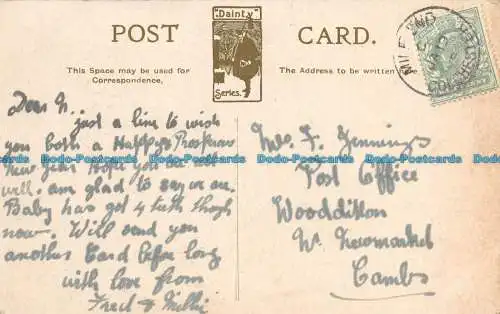 POST CARD.
"Dainty"
Series.
This Space may be used for
Correspondence.
The Address to be written
MILE END
COLCHESTER
Dear N.
just a line to wish
you both a Happy & Prosperous
New Year Hope you are
well. am glad to say
Baby has got 4 teeth though
now. Will send you
another Card before long
with love from
Fred & Millie
Mrs. F. Jennings
Post Office
Woodditton
Nr. Newmarket
Cambs
Dodo-Postcards Dodo-Postcards Dodo-Postcards Dodo-Postcards Dodo-Postcards